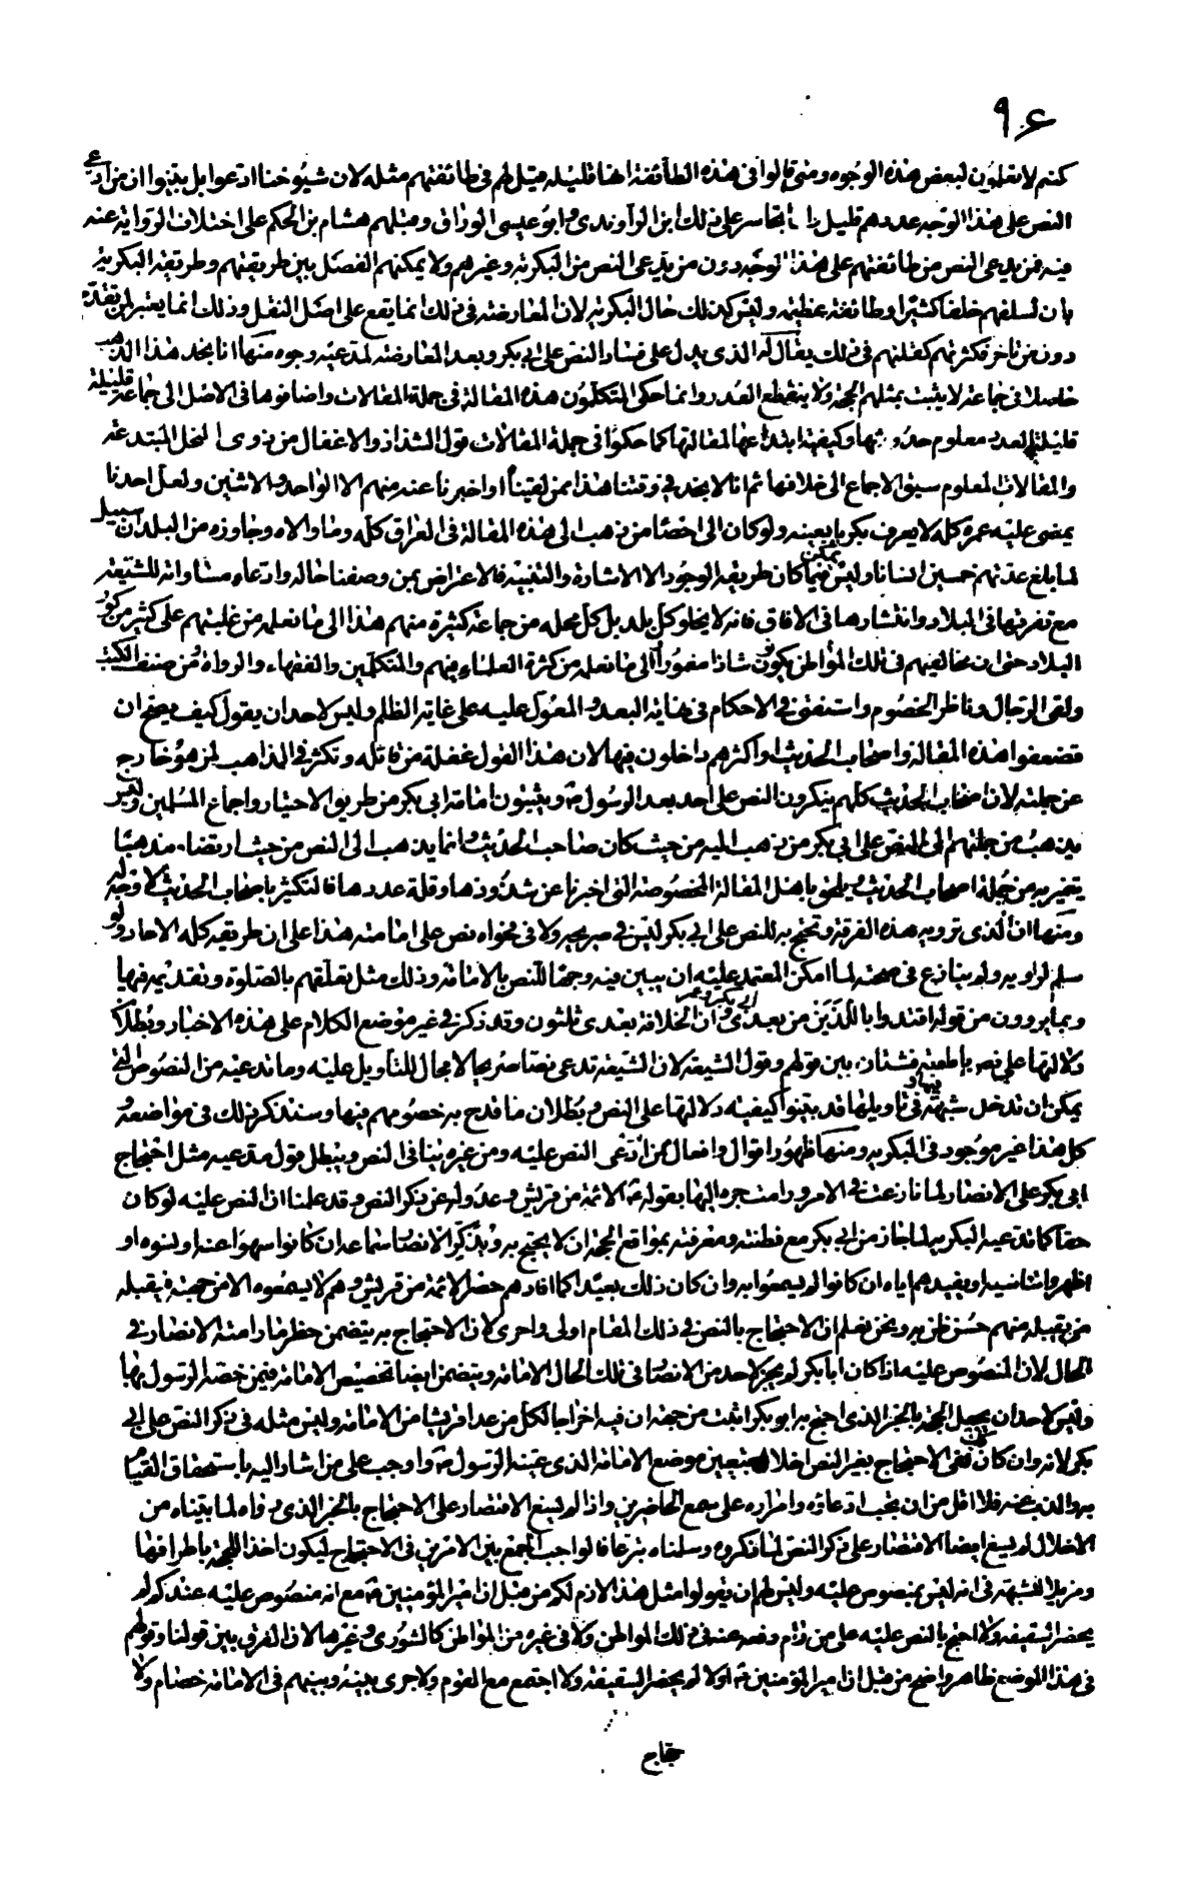 ٩٤
كنتم لا تعلمون لبعض هذه الوجوه ومتى قالوا في هذه الطائفة انها قليلة قيل لهم في طائفتهم مثله لان شيوخنا ادعوا بل بينوا ان من ادعى
النص على هذا الوجه عدد هم قليل تجاسر على ذلك ابن الراوندي وابو عيسى الوراق وقبلهم هشام بن الحكم على اختلاف الرواية عنه
فيه فمن يدعي النص من طائفتهم على هذا الوجه دون من يدعي النص من البكرية وغيرهم ولا يمكنهم الفصل بين طريقتهم وطريقة البكرية
بان لسلفهم خلفا كثيرا وطائفة عظيمة وليس كذلك حال البكرية لان المعارضة في ذلك انما يقع على اصل النقل وذلك انما يعتبر لمن تقدم
دون من تاخر فكثرتهم كقلتهم في ذلك يقال له الذي يدل على فساد النص على ابي بكر وبعد المعارضة لمدعيه وجوه منها انا نجد هذا المذهب
حاصلا في جماعة لا يثبت بمثلهم الحجة ولا ينقطع العذر وانما حكى المتكلمون هذه المقالة في جملة المقالات واضافوها في الاصل الى جماعة قليلة
قليلة العدد معلوم حدوثها وكيفية ابتدائها لمقالتها كما حكوا في جملة المقالات قول الشذاذ والاغفال من ذوي النحل المبتدعة
والمقالات المعلوم سبق الاجماع الى خلافها ثم انا لا نجد في وقتنا هذا ممن لقيناه او اخبرنا عنه منهم الا الواحد والاثنين ولعل احدنا
يمضي عليه عمره كله لا يعرف بكريا بعينه ولو كان الى احصاء من ذهب الى هذه المقالة في العراق كله وما والاه وجاوزه من البلدان سبيل
لما بلغ عدتهم خمسين انسانا وليس يمكن فيما كان طريقه الوجود الا الاشارة والتنبيه فالاعتراض بمن وصفنا حاله وادعاء مساواته للشيعة
مع تفرقها في البلاد وانتشارها في الافاق فانه لا يخلو كل بلد بل كل محلة من جماعة كثيرة منهم هذا الى ما نعلمه من غلبتهم على كثير من كور
البلاد حتى ان مخالفيهم في تلك المواطن يكون شاذا مغمورا الى ما نعلمه من كثرة العلماء فيهم والمتكلمين والفقهاء والرواة ومن صنف الكتب
ولقي الرجال وناظر الخصوم واستفتي في الاحكام في نهاية البعد والمعول عليه على غاية الظلم وليس لاحد ان يقول كيف يصح ان
تضعفوا هذه المقالة واصحاب الحديث او اكثرهم داخلون فيها لان هذا القول غفلة من قائله وتكثر في المذاهب لمن هو خارج
عن جملته لان اصحاب الحديث كلهم ينكرون النص على احد بعد الرسول ص ويثبتون امامة ابي بكر من طريق الاختيار واجماع المسلمين وليس
يذهب من جملتهم الى النص على ابي بكر من ذهب اليه من حيث كان صاحب الحديث وانما يذهب الى النص من حيث ارتضاه مذهبا
يتميز به من جملة اصحاب الحديث ويلحق باهل المقالة المخصوصة التي اخبرنا عن شذوذها وقلة عددها فالتكثير باصحاب الحديث لا وجه له
ومنها ان الذي ترويه هذه الفرقة وتحتج به للنص على ابي بكر ليس في صريحه ولا في فحواه نص على امامته هذا على ان طريقه كله الاحاد ولو
سلم لراويه ولم ينازع في صحته لما امكن المعتمد عليه ان يبين فيه وجها للنص بالامامة وذلك مثل تعلقهم بالصلوة وتقديمه فيها
وبما يروون من قوله اقتدوا باللذين من بعدي ابي بكر وعمر وان الخلافة بعدي ثلثون وقد ذكر في غير موضع الكلام على هذه الاخبار وبطلان
دلالتها على نص فشتان بين قولهم وقول الشيعة لان الشيعة تدعي نصا صريحا لا مجال للتاويل عليه وما تدعيه من النصوص التي
يمكن ان تدخل شبهة في تاويلها قد بينوا كيفية دلالتها على النص وبطلان ما قدح به خصومهم فيها وسنذكر ذلك في مواضعه و
كل هذا غير موجود في البكرية ومنها ظهور اقوال وافعال ممن ادعى النص عليه ومن غيره ينافي النص ويبطل قول مدعيه مثل احتجاج
ابي بكر على الانصار لما نازعت في الامر ورامت جره اليها بقوله ع الائمة من قريش وعدوله عن ذكر النص وقد علمنا ان النص عليه لو كان
حقا كما تدعيه البكرية لما جاز من ابي بكر مع فطنته ومعرفته بمواقع الحجة ان لا يحتج به ويذكر الانصار سماعه ان كانوا سهوا عنه او نسوه او
اظهروا تناسيه او يفيدهم اياه ان كانوا لم يسمعوا به وان كان ذلك بعيدا كما افادهم حصر الائمة من قريش وهم لا يسمعوه الا من جهته فيقبله
من يقبله منهم حسن ظن به ونحن نعلم ان الاحتجاج بالنص في ذلك المقام اولى واحرى لان الاحتجاج به يتضمن حظر ما رامته الانصار في
الحال لان المنصوص عليه اذا كان ابا بكر لم يجز لاحد من الانصار في تلك الحال الامامة ويتضمن ايضا تخصيص الامامة فيمن خصه الرسول بها
وليس لاحد ان يجعل الحجة بالخبر الذي احتج به ابو بكر اثبت من جهة ان فيه اخراجا لكل من عدا قريشا من الامامة وليس مثله في ذكر النص على ابي
بكر لانه وان كان كذلك ففي الاحتجاج بغير النص اخلال بتعيين موضع الامامة الذي عينه الرسول ص واوجب على من اشار اليه باستحقاق القيام
به والذب عنه فلا اقل من ان يجب ادعاؤه وامراره على سمع الحاضرين واذا لم يسغ الاقتصار على الاحتجاج بالخبر الذي رواه لما بيناه من
الاخلال لم يسغ ايضا الاقتصار على ذكر النص لما ذكروه وسلمناه تبرعا فالواجب الجمع بين الامرين في الاحتجاج ليكون اخذا للحجة باطرافها
ومزيلا للشبهة في انه ليس بمنصوص عليه وليس لهم ان يقولوا مثل هذا لازم لكم من قبل ان امير المؤمنين ع مع انه منصوص عليه عندكم لم
يحضر السقيفة ولا احتج بالنص عليه على من رام دفعه عنه في تلك المواطن ولا في غيره من المواطن كالشورى وغيرها لان الفرق بين قولنا وقولهم
في هذا الموضع ظاهر واضح من قبل ان امير المؤمنين ع اولا لم يحضر السقيفة ولا اجتمع مع القوم ولا جرى بينه وبينهم في الامامة خصام ولا
حجاج